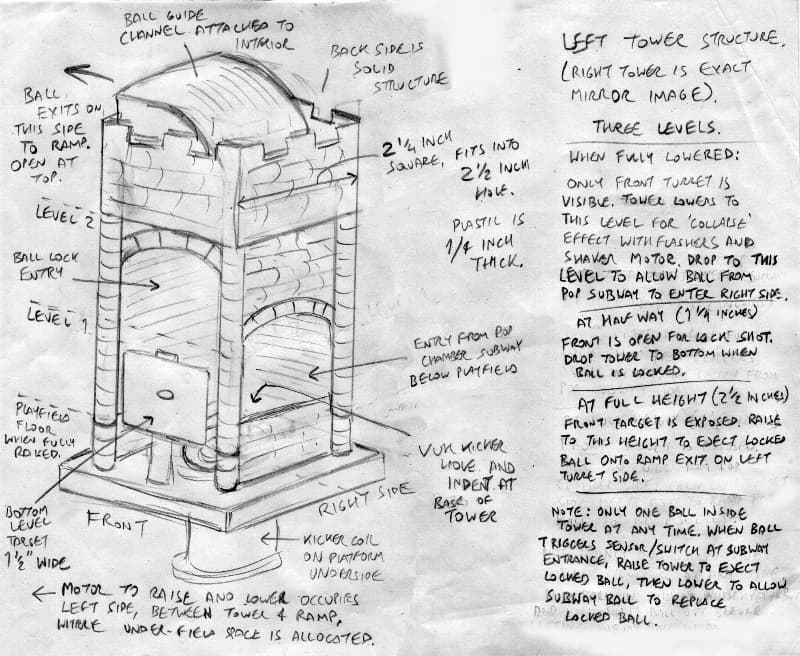 BALL GUIDE
CHANNEL ATTACHED TO
INTERIOR
BACK SIDE IS
SOLID
STRUCTURE
BALL
EXITS ON
THIS SIDE
TO RAMP.
OPEN AT
TOP.
2 1/4 INCH
SQUARE, FITS INTO
2 1/2 INCH
HOLE.
PLASTIC IS
1/4 INCH
THICK.
LEVEL 2
BALL LOCK
ENTRY
LEVEL 1
ENTRY FROM POP
CHAMBER SUBWAY
BELOW PLAYFIELD
PLAYFIELD
FLOOR
WHEN FULLY
RAISED.
VUK KICKER
HOLE AND
INDENT AT
BASE OF
TOWER
BOTTOM
LEVEL
TARGET
1 1/2" WIDE
FRONT
RIGHT SIDE
KICKER COIL
ON PLATFORM
UNDERSIDE
MOTOR TO RAISE AND LOWER OCCUPIES
LEFT SIDE, BETWEEN TOWER & RAMP,
UNDER-FIELD SPACE IS ALLOCATED.
LEFT TOWER STRUCTURE.
(RIGHT TOWER IS EXACT
MIRROR IMAGE).
THREE LEVELS.
WHEN FULLY LOWERED:
ONLY FRONT TURRET IS
VISIBLE. TOWER LOWERS TO
THIS LEVEL FOR 'COLLAPSE'
EFFECT WITH FLASHERS AND
SHAKER MOTOR. DROP TO THIS
LEVEL TO ALLOW BALL FROM
POP SUBWAY TO ENTER RIGHT SIDE.
AT HALF WAY (1 1/4 INCHES)
FRONT IS OPEN FOR LOCK SHOT.
DROP TOWER TO BOTTOM WHEN
BALL IS LOCKED.
AT FULL HEIGHT (2 1/2 INCHES)
FRONT TARGET IS EXPOSED. RAISE
TO THIS HEIGHT TO EJECT LOCKED
BALL ONTO RAMP EXIT ON LEFT
TURRET SIDE.
NOTE: ONLY ONE BALL INSIDE
TOWER AT ANY TIME. WHEN BALL
TRIGGERS SENSOR/SWITCH AT SUBWAY
ENTRANCE, RAISE TOWER TO EJECT
LOCKED BALL, THEN LOWER TO ALLOW
SUBWAY BALL TO REPLACE
LOCKED BALL.